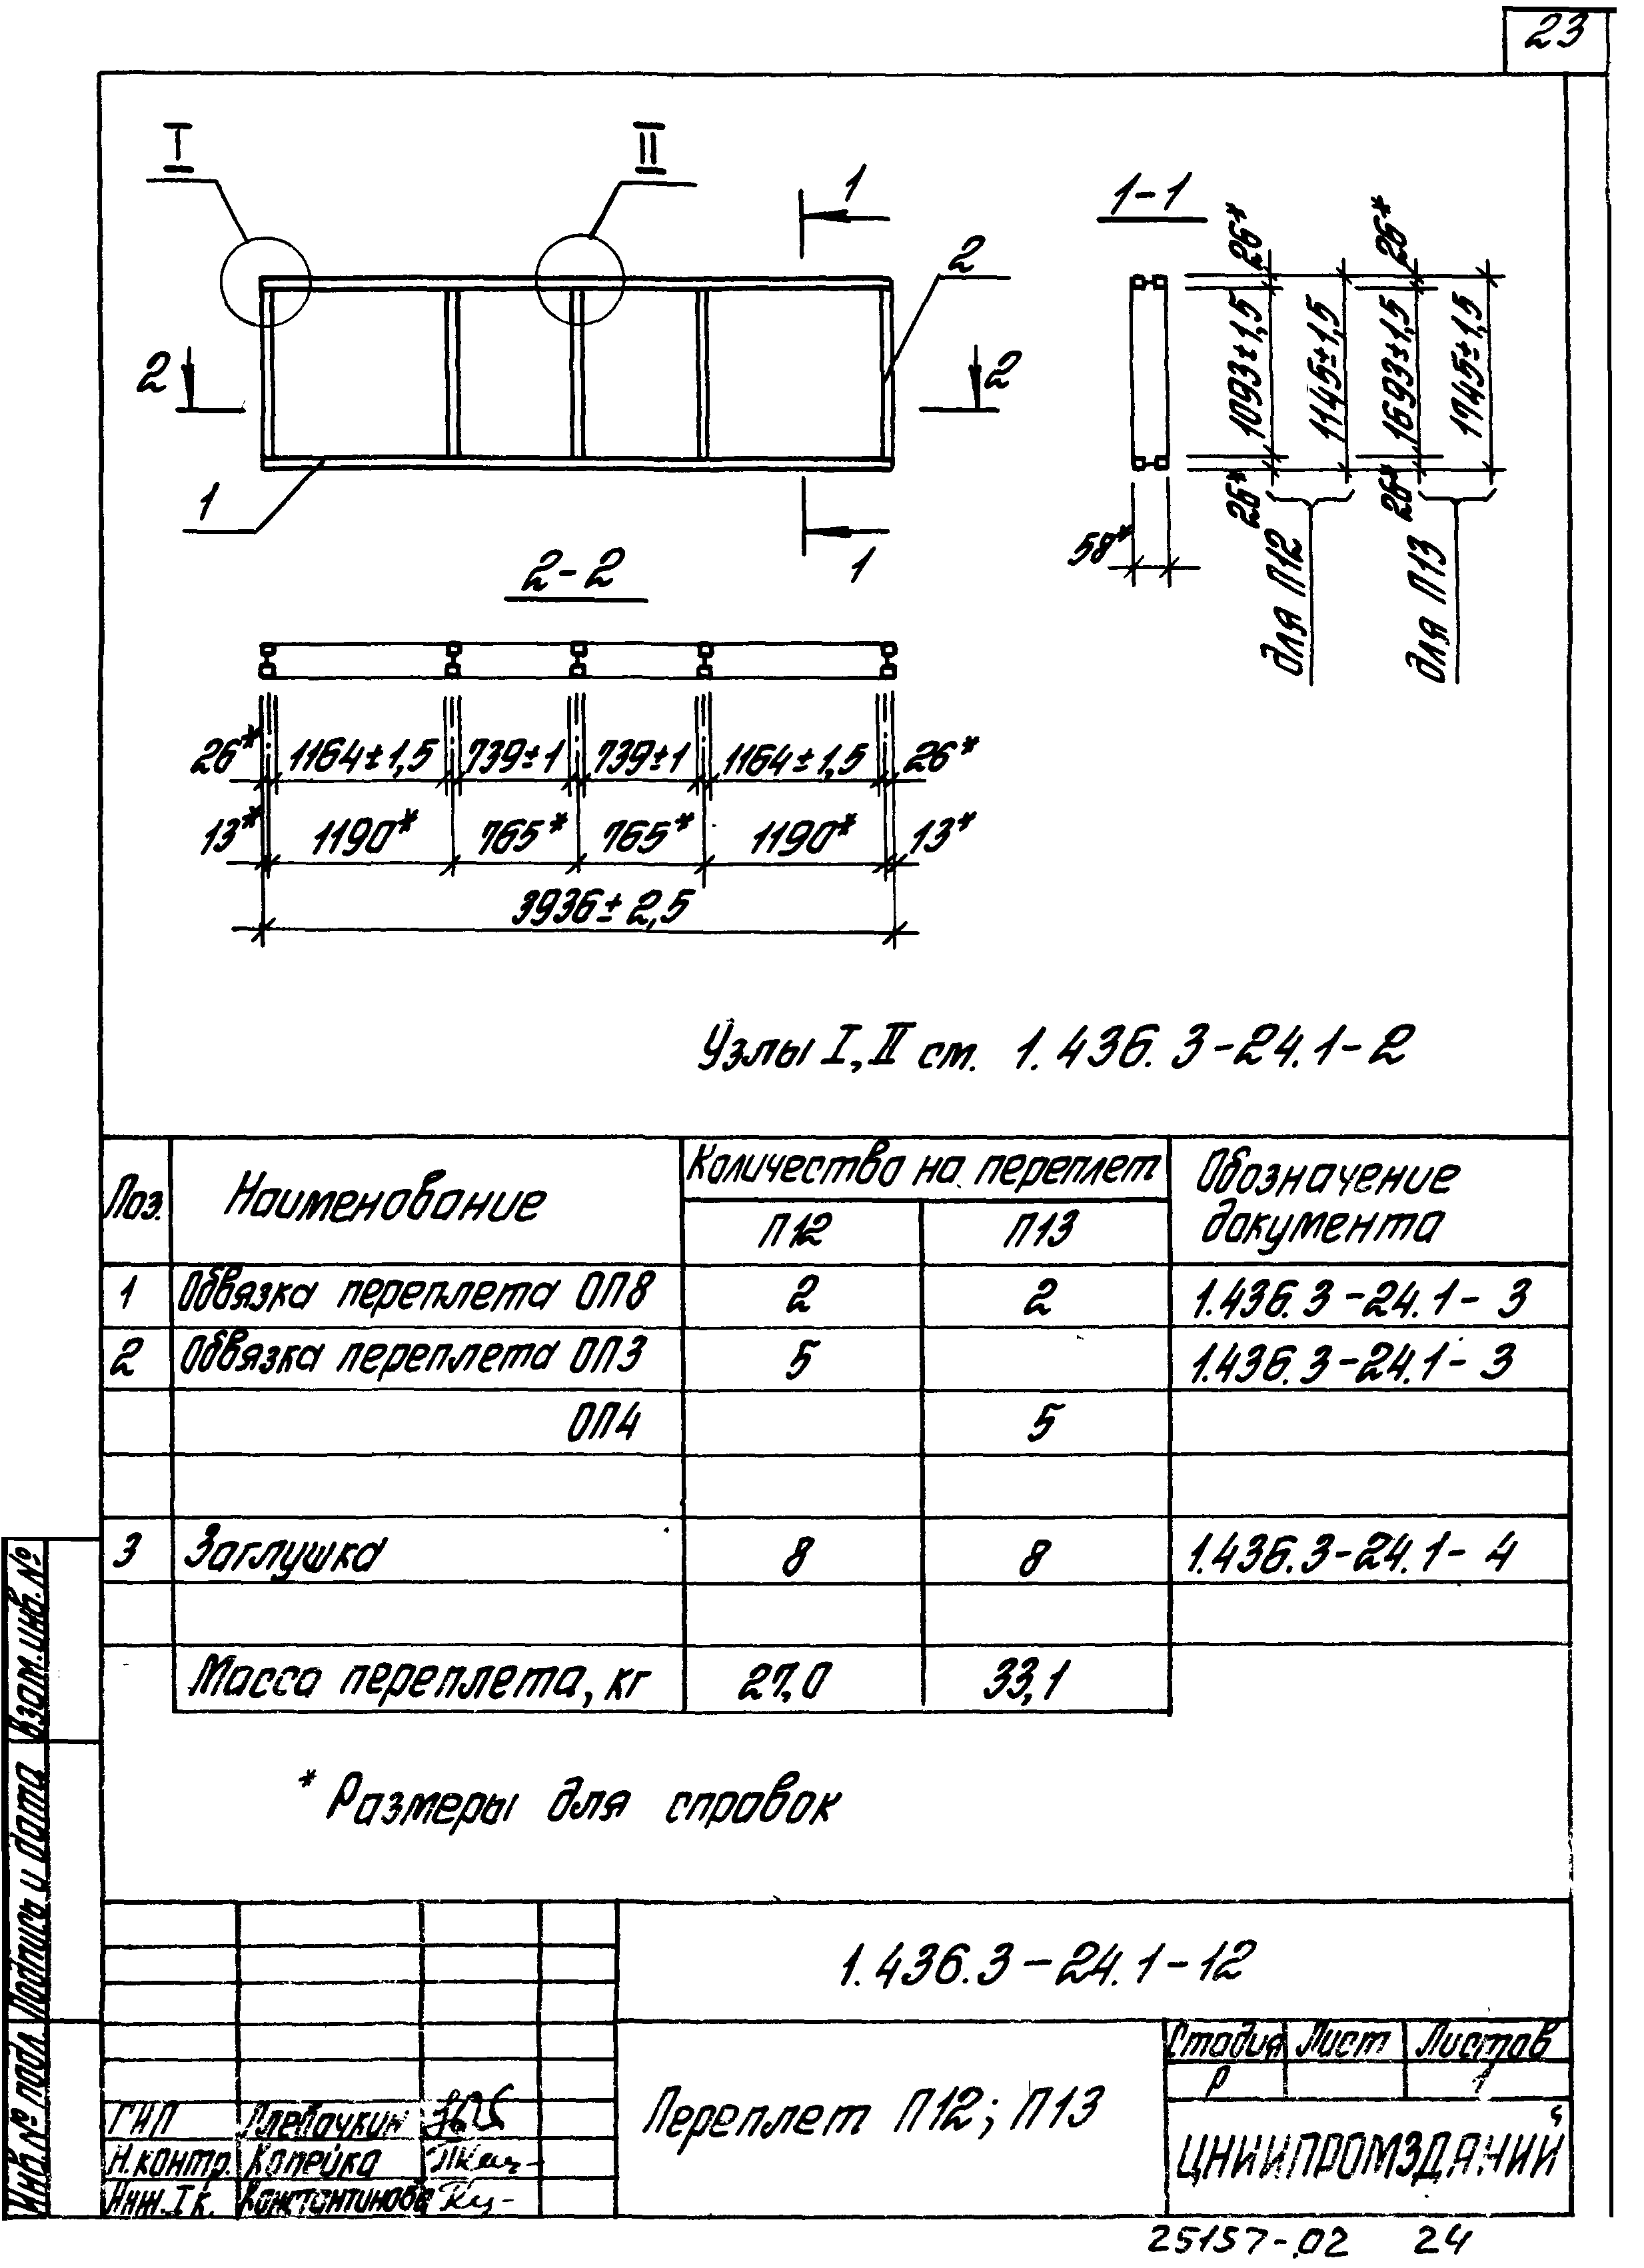 23
I
II
1
1-1
2
2
2
1
1
26*
1093±1,5
26*
1145±1,5
26*
1693±1,5
26*
1745±1,5
58*
для П12
для П13
2-2
26* 1164±1,5 739±1 739±1 1164±1,5 26*
13* 1190* 765* 765* 1190* 13*
3936±2,5
Узлы I, II ст. 1.436.3-24.1-2
Поз. Наименование Количество на переплет Обозначение документа
П12 П13
1 Обвязка переплета ОП8 2 2 1.436.3-24.1-3
2 Обвязка переплета ОП3 5 1.436.3-24.1-3
ОП4 5
3 Заглушка 8 8 1.436.3-24.1-4
Масса переплета, кг 27,0 33,1
* Размеры для справок
Взам.инв.№
Подпись и дата
Инв.№ подл.
1.436.3-24.1-12
Стадия Лист Листов
Р 1
Переплет П12; П13
ЦНИИПРОМЗДАНИЙ
ГИП
Н.контр. Копейка
Инж. I к. Константинова
25157-02 24